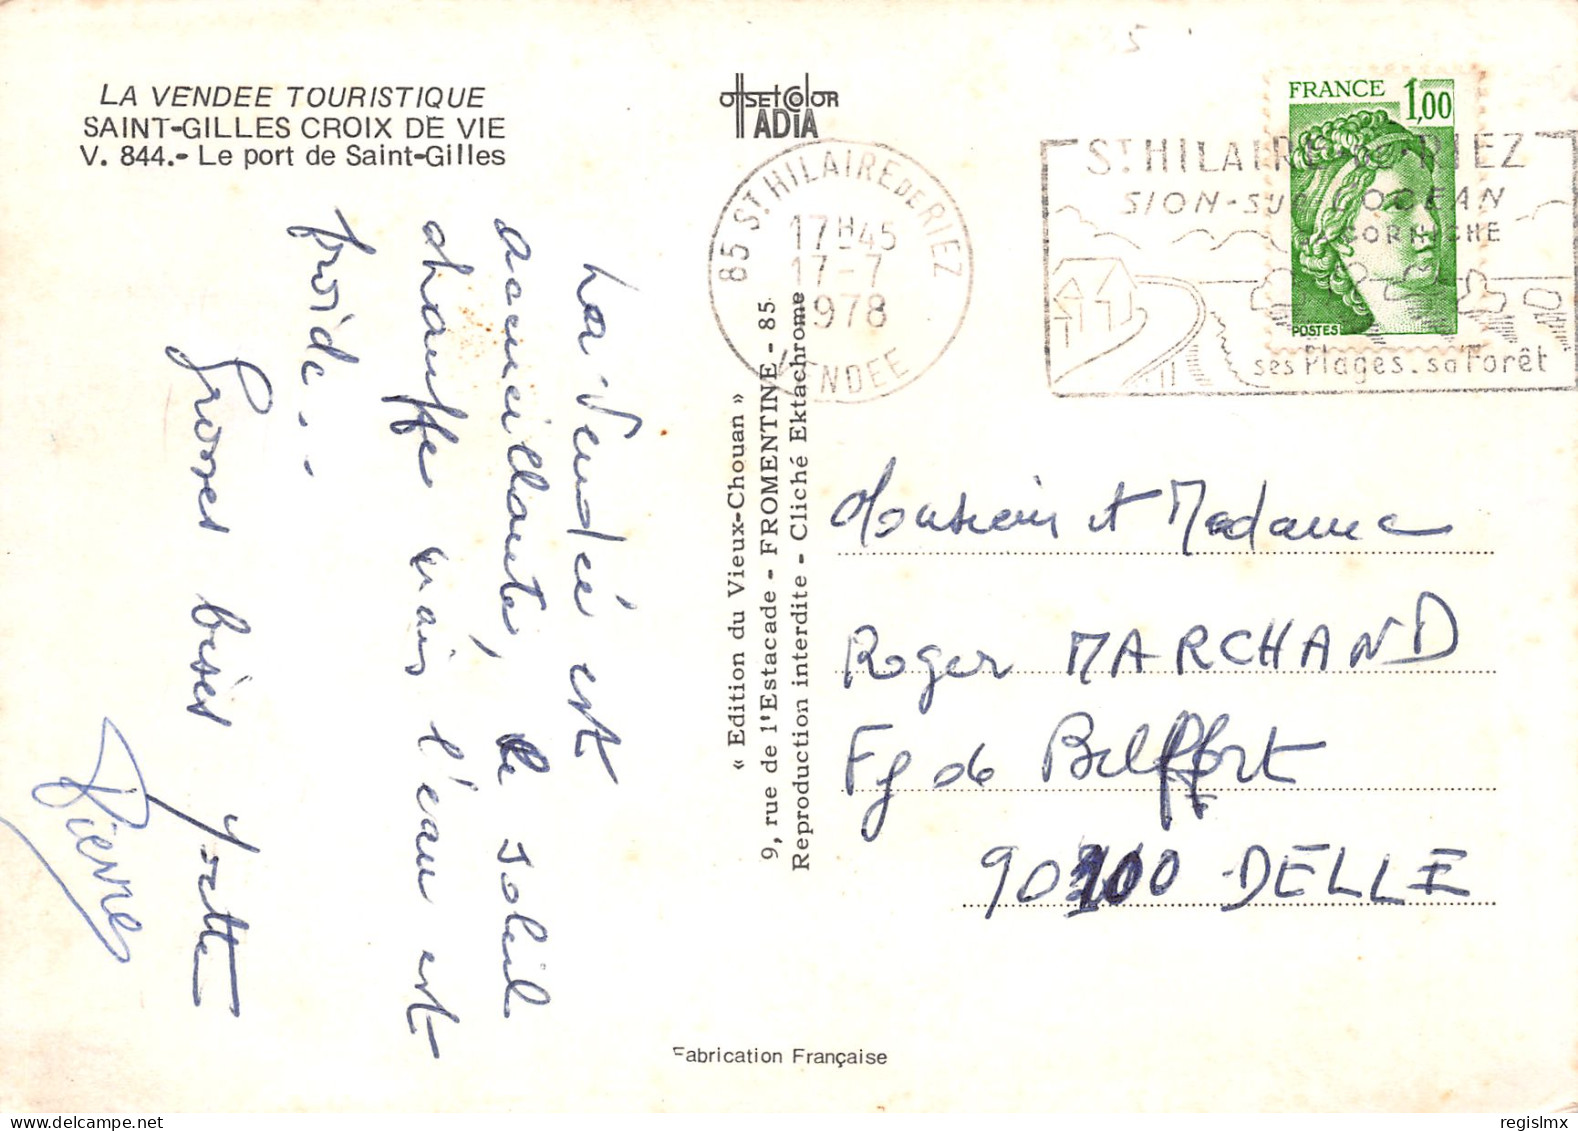 LA VENDEE TOURISTIQUE
SAINT-GILLES CROIX DE VIE
V. 844.- Le port de Saint-Gilles
OFFSETCOLOR
ADIA
85 ST HILAIRE DE RIEZ
17H45
17-7
1978
VENDEE
ST HILAIRE DE RIEZ
SION-SUR-L'OCEAN
SA CORNICHE
ses Plages. sa Forêt
FRANCE 1,00
POSTES
La Vendée est
accueillante, le soleil
chauffe mais l'eau est
froide..
Grosses bises Yvette
Pierre
« Edition du Vieux-Chouan »
9, rue de l'Estacade - FROMENTINE - 85
Reproduction interdite - Cliché Ektachrome
Monsieur et Madame
Roger MARCHAND
Fg de Belfort
90100 DELLE
Fabrication Française
regislmx